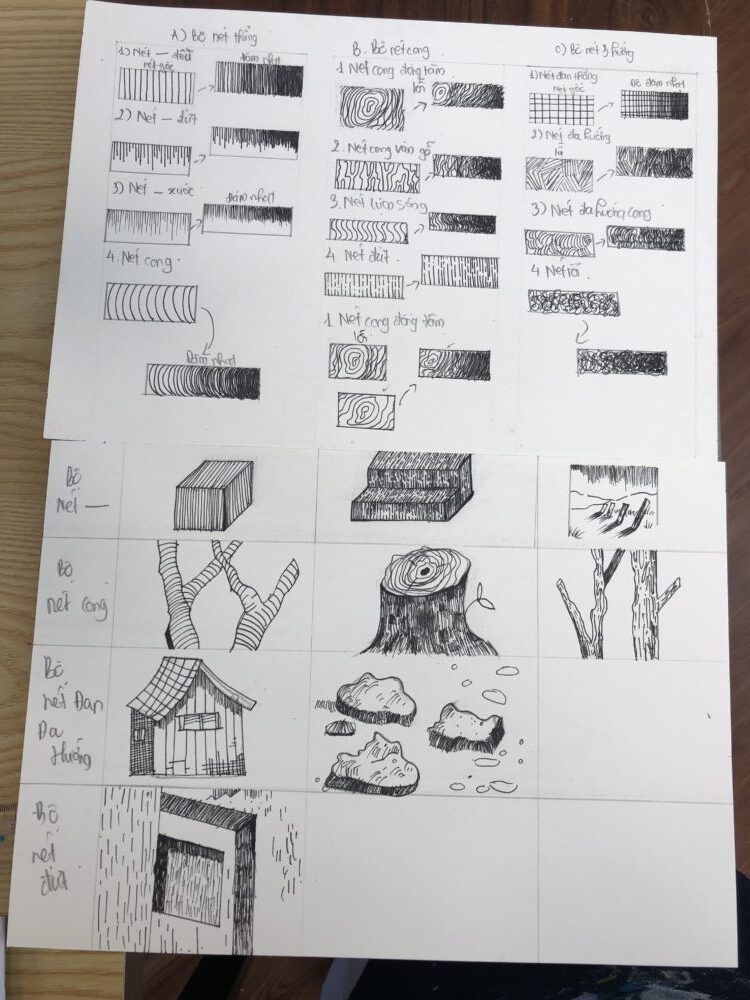 A) Bộ nét thẳng
1) Nét — đều
nét gốc
đậm nhạt
2) Nét — đứt
3) Nét — xước
Đậm nhạt
4. Nét cong.
Đậm nhạt
B. Bộ nét cong
1. Nét cong đồng tâm
lõi
2. Nét cong vân gỗ
3. Nét lượn sóng
4. Nét đứt.
1. Nét cong đồng tâm
lõi
C) Bộ nét 3 hướng
1) Nét đan thẳng
Nét gốc
Độ đậm nhạt
2) Nét đa hướng
lõi
3) Nét đa hướng cong
4 Nét rối.
Bộ
nét —
Bộ
nét cong
Bộ
nét Đan
Đa
Hướng
Bộ
nét
đứt